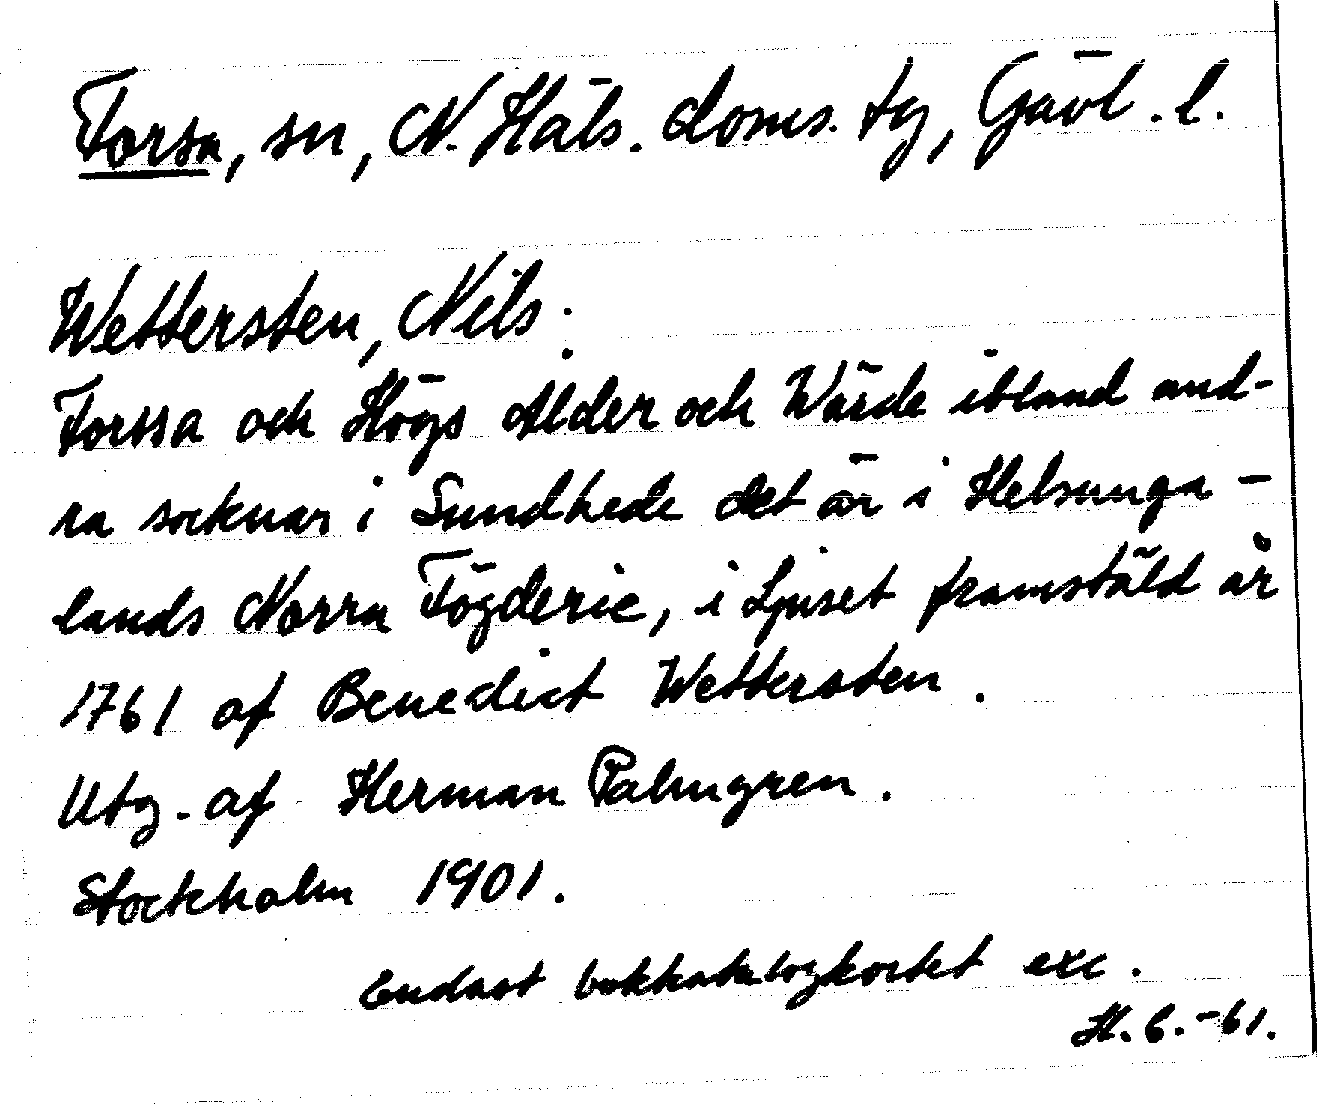 Forsa, sn, N. Häls. doms. tg, Gävl. l.
Wettersten, Nils:
Forssa och Högs Ålder och Wärde ibland and-
ra socknar i Sundhede det är i Helsunga-
lands Norra Fögderie, i Ljuset framstäld år
1761 af Benedict Wettersten.
Utg. af Herman Palmgren.
Stockholm 1901.
Endast bokkatalogkortet exc.
H. G. -61.